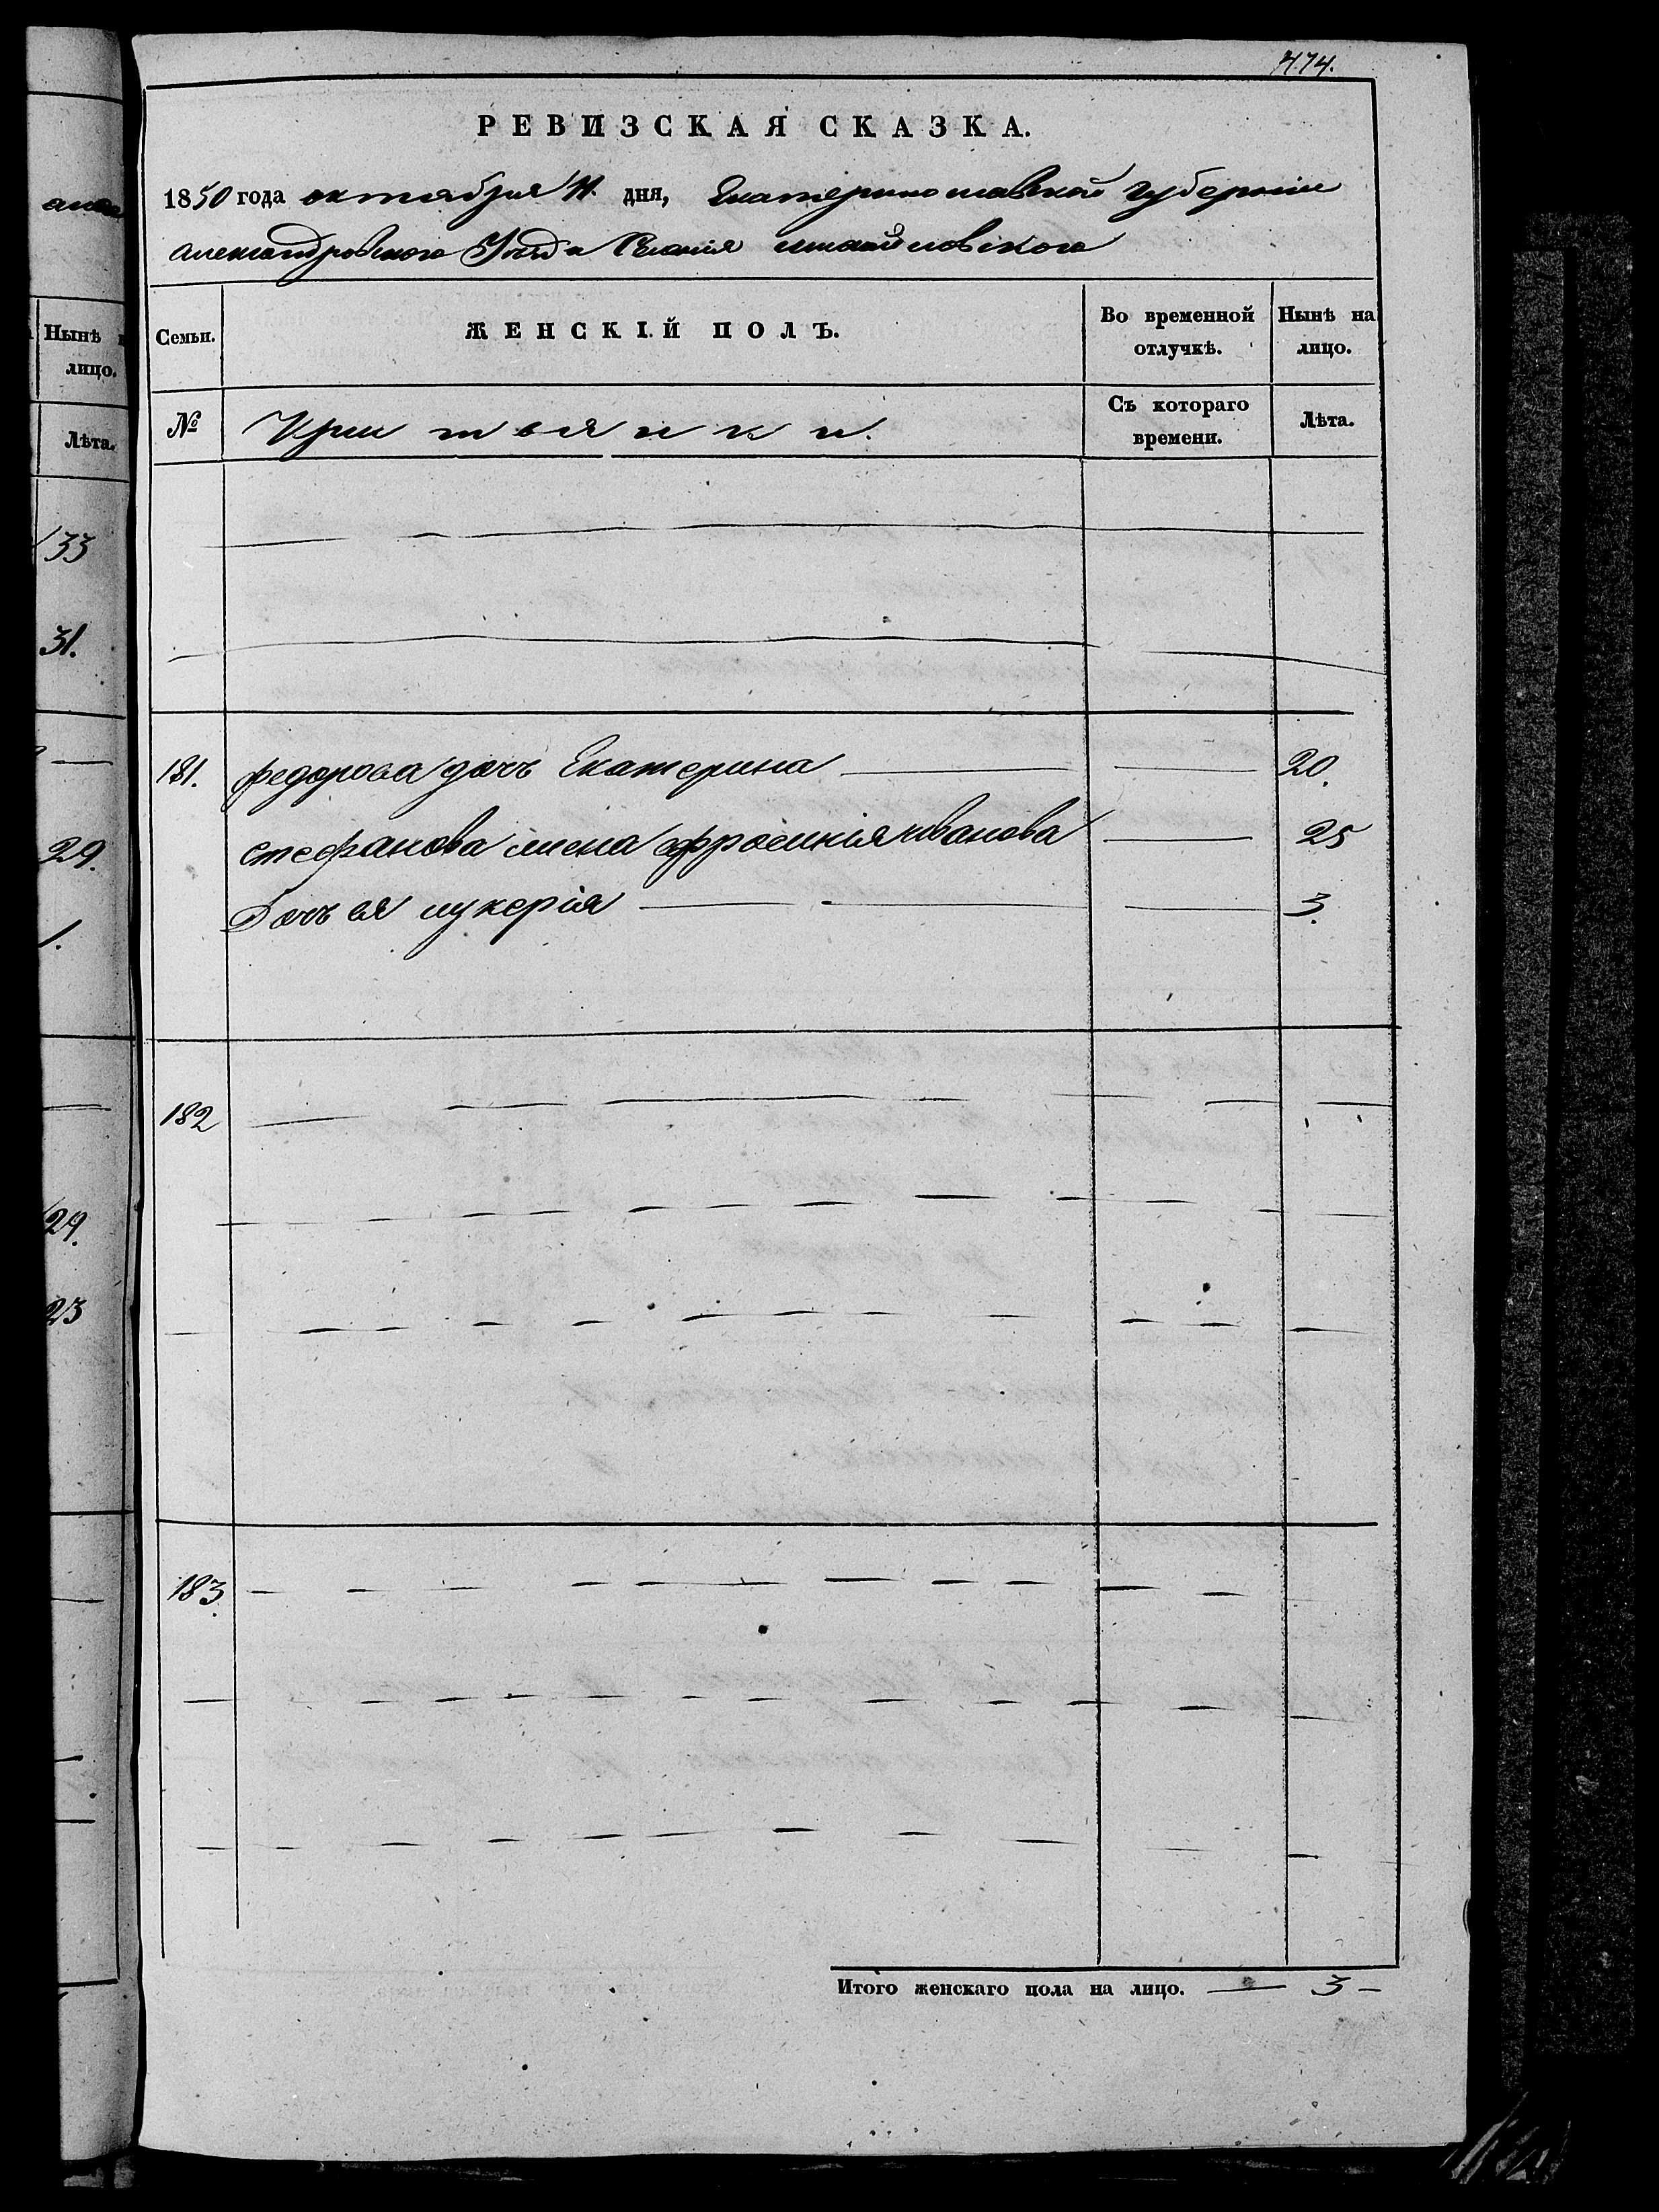 474.
РЕВИЗСКАЯ СКАЗКА.
1850 года октября 11. дня, Екатеринославской губернiи
александровского Уѣзда Селенiя
Семьи. ЖЕНСКІЙ ПОЛЪ. Во временной отлучкѣ. Нынѣ на лицо.
№ Крестьянки. Съ котораго времени. Лѣта.
181. федорова дочь Екатерина 20.
стефанова жена ефросинiя иванова 25
Дочь ея лукерiя 3.
182
183.
Итого женскаго пола на лицо. — 3 —
Нынѣ
лицо.
Лѣта.
33
31.
29.
1.
29.
23